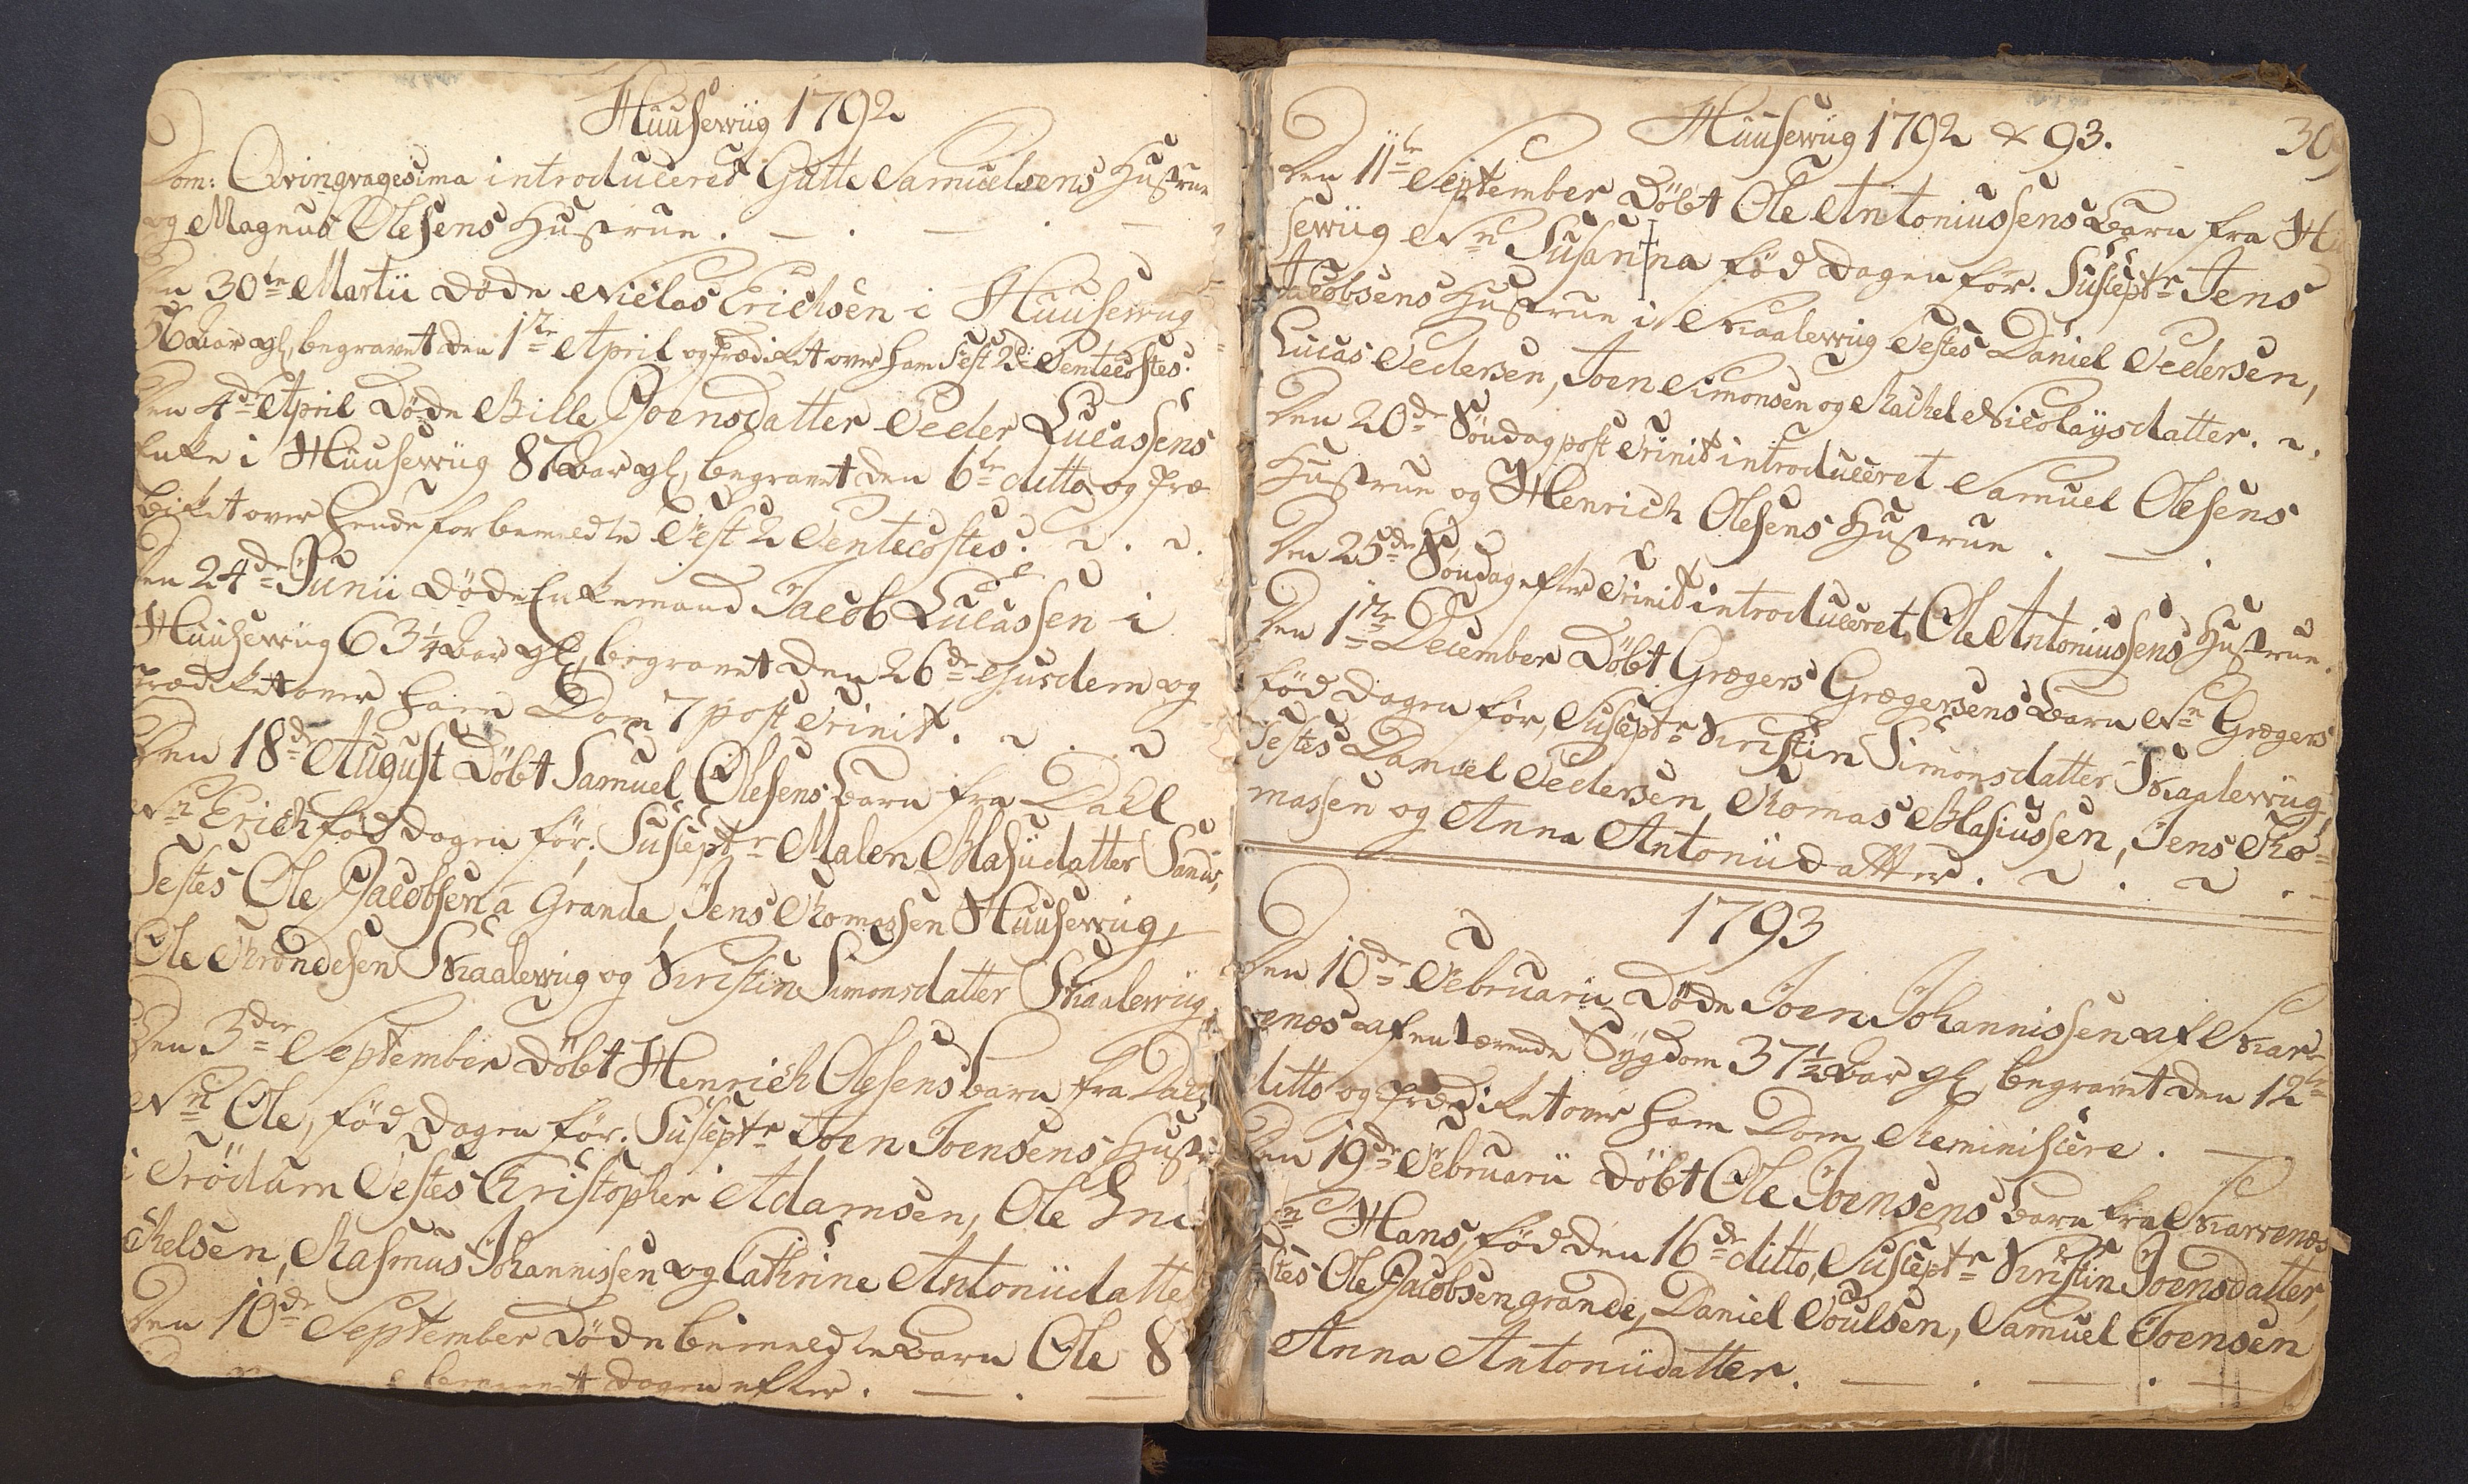 Huusewiig 1792
Dom: Qvinqvagesima introduceret Gutte Samuelsens Hustrue
og Magnus Olesens Hustrue. — . — . —
Den 30te Martii døde Niclas Erichsen i Huusewiig
56 Aar gl, begravet den 1te April og prædiket over ham Fest 2di Pentecostes.
Den 4de April døde Bille Joensdatter Peder Lucassens
Enke i Huusewiig 87 Aar gl, begravet den 6te ditto og præ
diket over hende forbemeldte Fest 2 Pentecostes.
Den 24de Junii døde Enkemand Jacob Lucassen i
Huusewiig 63¼ Aar gl, begravet den 26de ejusdem og
prædiket over ham Dom 7 post Trinit.
Den 18de August døbt Samuel Olesens Barn fra Dahl
Nn Erich fød dagen før, Suscept Malen Blasiidatter Sand,
Testes Ole Jacobsen a Grande, Jens Thomassen Huusewiig,
Ole Throndesen Skaalewiig og Kiristin Simonsdatter Skaalewiig.
Den 3die September døbt Henrich Olesens Barn fra Dahl
Nn Ole, fød dagen før. Suscept Joen Joensens Hustr
i Trödum Testes Christopher Adamsen, Ole
chelsen, Rasmus Johannissen og Cathrine Antoniidatte
Den 10de September døde bemeldte Barn Ole 8
begravet dagen efter. — . —
Huusewiig 1792 & 93.
30
Den 11te September døbt Ole Antoniussens Barn fra Hu
sewiig Nn Susanna fød dagen før. Suscept Jens
Jacobsens Hustrue i Skaalewiig Testes Daniel Pedersen,
Lucas Pedersen, Joen Simonsen og Rachel Nicolaysdatter.
Den 20de Söndag post Trinit introduceret Samuel Olesens
Hustrue og Henrich Olesens Hustrue . — .
Den 25de Söndag efter Trinit introduceret Ole Antoniussens Hustrue.
Den 1te December døbt Grægers Grægersens Barn Nn Grægers
fød dagen før, Suscept Kiristin Simonsdatter Skaalewiig,
Testes Daniel Pedersen, Thomas Blasiussen, Jens Tho=
massen og Anna Antoniidatter.
1793
Den 10de Februarii døde Joen Johannissen af Skar=
venæs af en tærende Sygdom 37½ Aar gl, begravet den 12te
ditto og prædiket over ham Dom Reminiscere. —
Den 19de Februarii døbt Ole Joensens Barn fra Skarvenæs
Nn Hans, fød den 16de ditto, Suscept Kirstin Joensdatter,
stes Ole Jacobsen grande, Daniel Poulsen, Samuel Joensen
Anna Antoniidatter. — . — . —